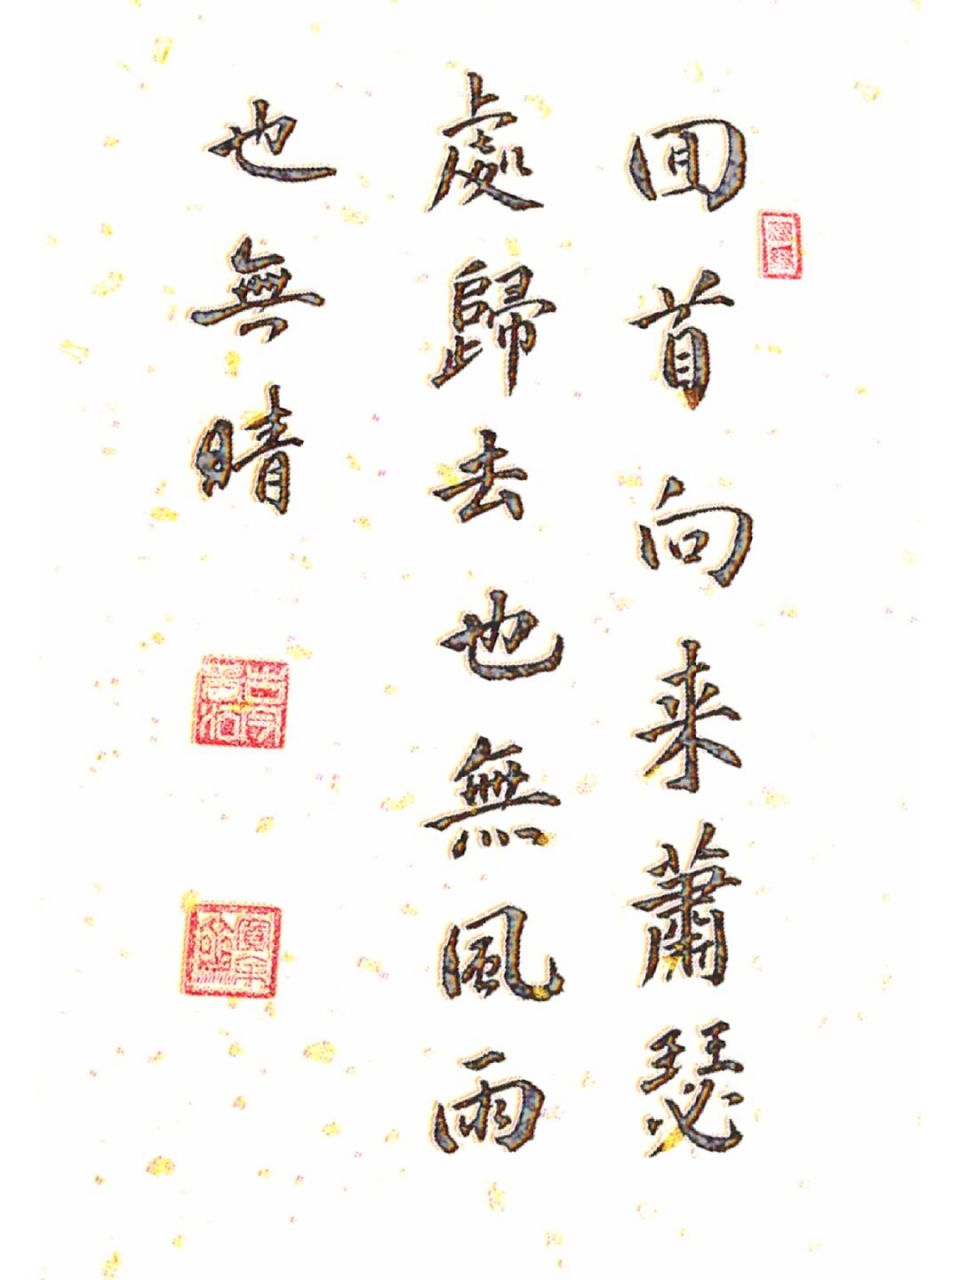 回首向来蕭瑟
處歸去也無風雨
也無晴